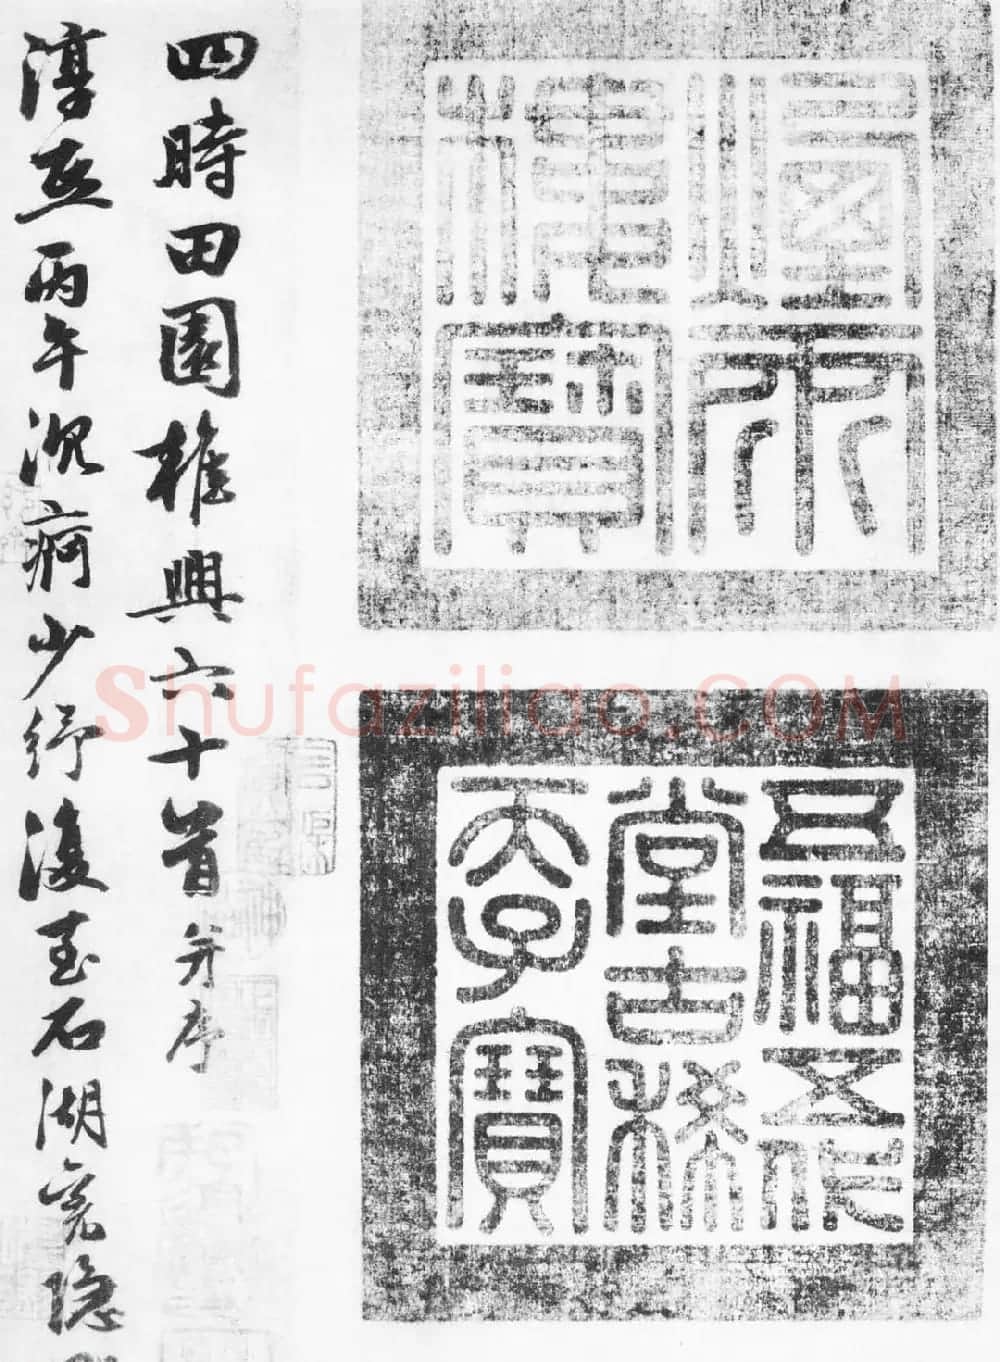 五福五代
堂古稀
天子寶
四時田園雜興六十首并序
淳熙丙午沉痾少紓復至石湖舊隱
Shufaziliao.COM